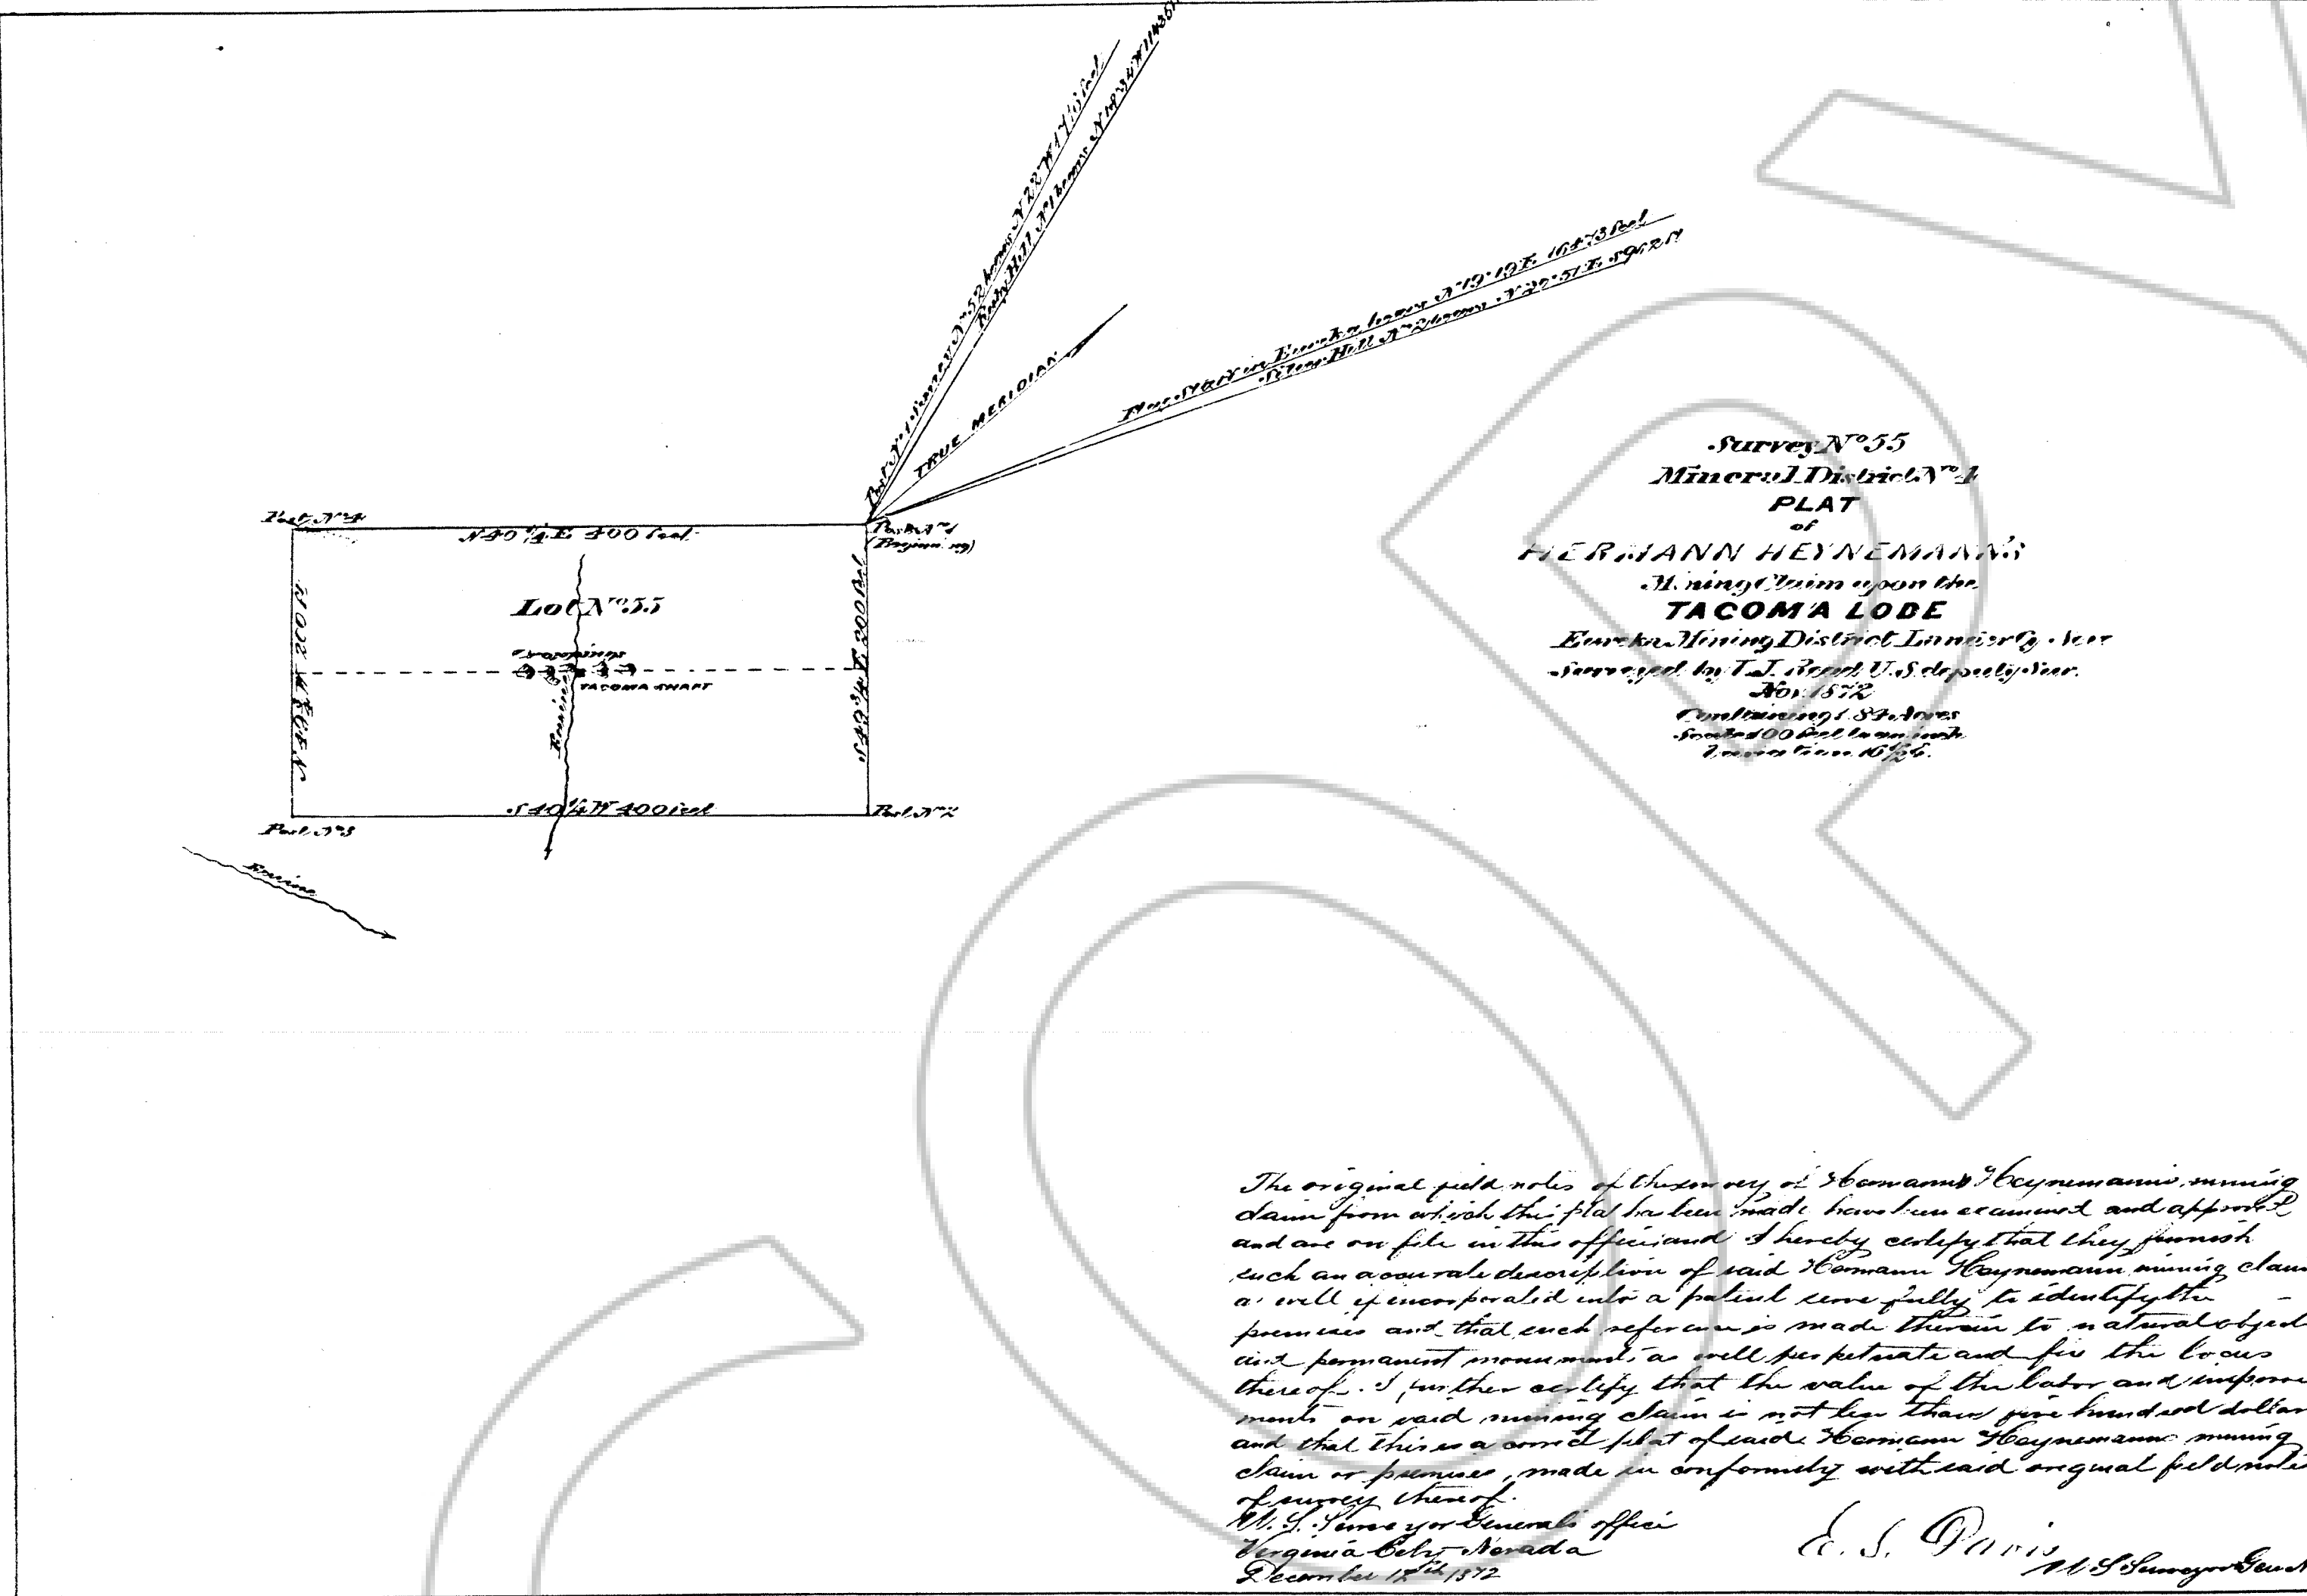 Post No 1 Survey No 52 bears N 22° W 1716 feet
Ruby Hill No 1 bears
TRUE MERIDIAN
Flag Staff in Eureka bears N 19° 19' E. 16473 feet
Silver Hill No 2 bears N 20° 51' E. 5962 ft
Post No 4
N 40 ¼ E 400 feet
Post No 1
(Beginning)
Lot No 55
Croppings
TACOMA SHAFT
Ravine
N 49 ¾ W 200 feet
S 49 ¾ E 200 feet
S 40 ¼ W 400 feet
Post No 3
Post No 2
Ravine
Survey No 55
Mineral District No 1
PLAT
of
HERMANN HEYNEMANN'S
Mining Claim upon the
TACOMA LODE
Eureka Mining District Lander Co. Nev
Surveyed by T. J. Read U.S. deputy Sur.
Nov. 1872
Containing 1.84 Acres
Scale 100 feet to an inch
Variation 16½ E.
The original field notes of the survey of Hermann Heynemann's mining
claim from which this plat has been made have been examined and approved
and are on file in this office; and I hereby certify that they furnish
such an accurate description of said Hermann Heynemann mining claim
as will if incorporated into a patent serve fully to identify the
premises and that such reference is made therein to natural object
and permanent monuments as will perpetuate and fix the locus
thereof. I further certify that the value of the labor and improve
ments on said mining claim is not less than five hundred dollar
and that this is a correct plat of said Hermann Heynemanns mining
claim or premises, made in conformity with said original field notes
of survey thereof.
U. S. Surveyor General's office
Virginia City Nevada
December 12th 1872
E. S. Davis
U S Surveyor Genl
COPY